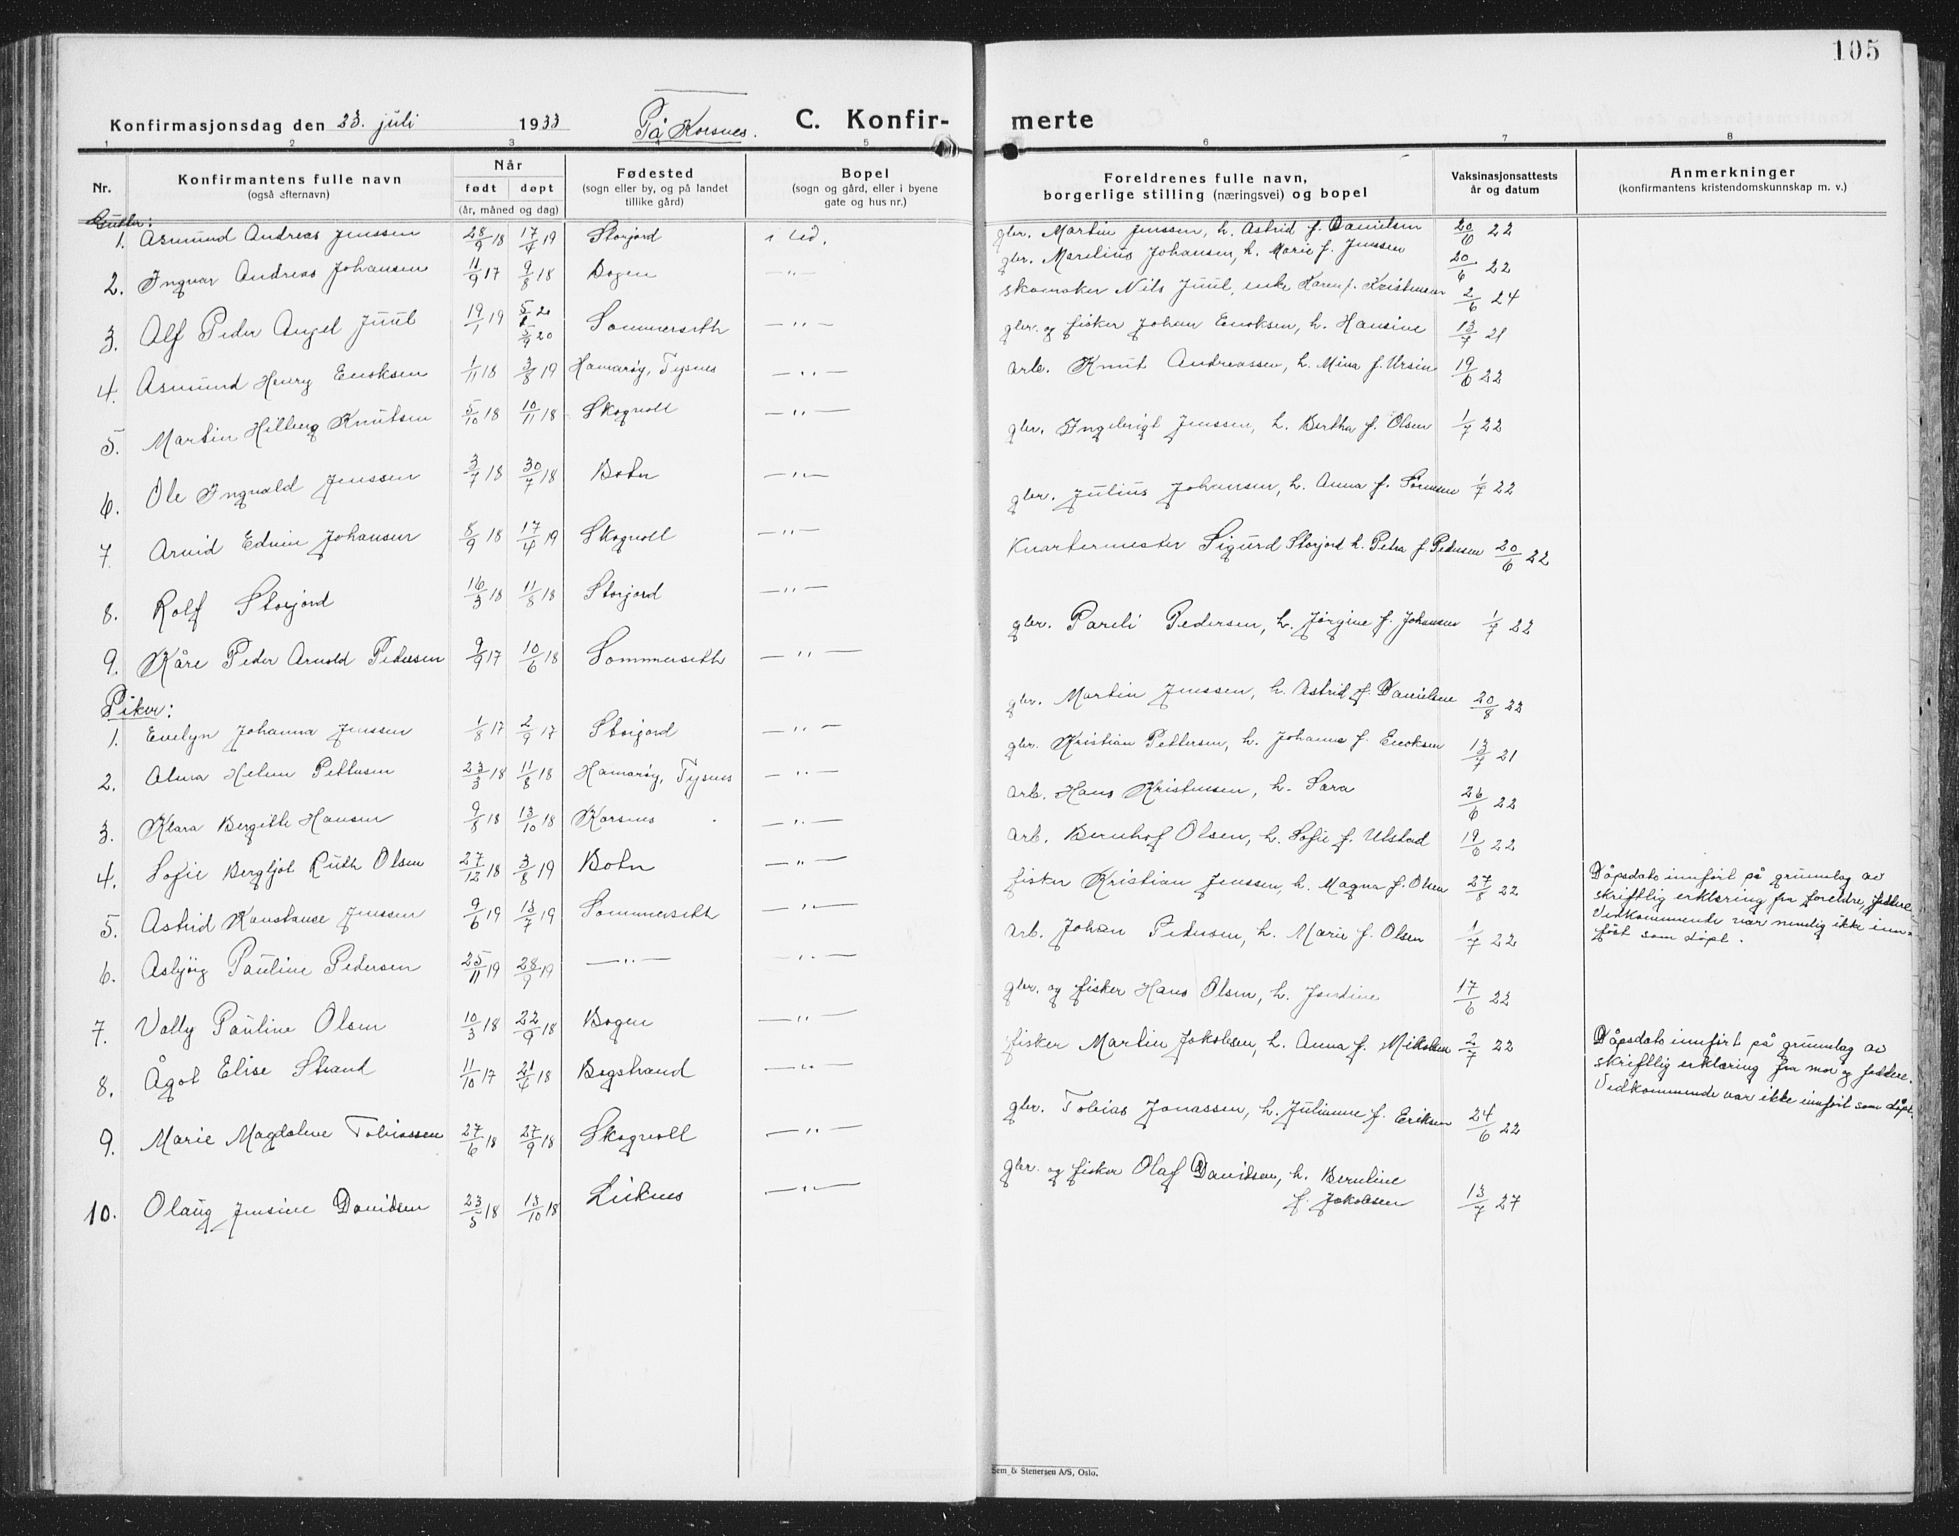 105
Konfirmasjonsdag den 23. juli 1933 På Korsnes. C. Konfir- merte
1 2 3 4 5 6 7 8
Nr. Konfirmantens fulle navn (også efternavn) Når født døpt (år, måned og dag) Fødested (sogn eller by, og på landet tillike gård) Bopel (sogn og gård, eller i byene gate og hus nr.) Foreldrenes fulle navn, borgerlige stilling (næringsvei) og bopel Vaksinasjonsattests år og datum Anmerkninger (konfirmantens kristendomskunnskap m. v.)
Gutter:
1. Asmund Andreas Jenssen 28/9 18 17/4 19 Storjord i Lød. gbr. Martin Jenssen, h. Astrid f. Danielsen 20/6 22
2. Ingvar Andreas Johansen 11/9 17 9/8 18 Bogen —"— gbr. Marelius Johansen, h. Marie f. Jenssen 20/6 22
3. Alf Peder Angel Juul 19/1 19 5/20 5/9 20 Sommerseth —"— skomaker Nils Juul, enke Karen f. Kristensen 2/6 24
4. Asmund Henry Enoksen 1/11 18 3/8 19 Hamarøy, Tysnes —"— gbr. og fisker Johan Enoksen, h. Hansine 13/7 21
5. Martin Hilberg Knutsen 5/10 18 10/11 18 Skogvoll —"— arb. Knut Andreassen, h. Mina f. Ursin 19/6 22
6. Ole Ingvald Jenssen 3/7 18 30/7 18 Botn —"— gbr. Ingebrigt Jenssen, h. Bertha f. Olsen 1/7 22
7 Arvid Edvin Johansen 8/9 18 17/4 19 Skogvoll —"— gbr. Julius Johansen, h. Anna f. Sørensen 1/7 22
8. Rolf Storjord 16/3 18 11/8 18 Storjord —"— Kvartermester Sigurd Storjord h. Petra f. Pedersen 20/6 22
9. Kåre Peder Arnold Pedersen 9/9 17 10/6 18 Sommerseth —"— gbr. Pareli Pedersen, h. Jørgine f. Johansen 1/7 22
Piker:
1. Evelyn Johanna Jenssen 1/8 17 2/9 17 Storjord —"— gbr. Martin Jenssen, h. Astrid f. Danielsen 20/8 22
2. Alma Helene Pettersen 23/3 18 11/8 18 Hamarøy, Tysnes —"— gbr. Kristian Pettersen, h. Johanna f. Enoksen 13/7 21
3. Klara Bergitte Hansen 9/8 18 13/10 18 Korsnes —"— arb. Hans Kristensen, h. Sara 26/6 22
4. Sofie Bergljot Ruth Olsen 27/12 18 3/8 19 Botn —"— arb. Bernhof Olsen, h. Sofie f. Ulstad 19/6 22
5. Astrid Konstanse Jenssen 9/6 19 13/7 19 Sommerseth —"— fisker Kristian Jenssen, h. Magna f. Olsen 27/8 22 Dåpsdato innført på grunnlag av
skriftlig erklæring fra foreldre, faddere.
Vedkommende var nemlig ikke inn-
ført som døpt.
6. Asbjørg Pauline Pedersen 25/11 19 28/9 19 —"— —"— arb. Johan Pedersen, h. Marie f. Olsen 1/7 22
7. Vally Pauline Olsen 10/3 18 22/9 18 Bogen —"— gbr. og fisker Hans Olsen, h. Josefine 17/6 22
8. Ågot Elise Strand 11/10 17 21/4 18 Bogstrand —"— fisker Martin Jakobsen, h. Anna f. Mikalsen 2/7 22 Dåpsdato innført på grunnlag av
skriftlig erklæring fra mor og faddere.
Vedkommende var ikke innført som døpt.
9. Marie Magdalene Tobiassen 27/6 18 27/9 18 Skogvoll —"— gbr. Tobias Jonassen, h. Julianne f. Eriksen 24/6 22
10. Olaug Jensine Davidsen 23/5 18 13/10 18 Liknes —"— gbr. og fisker Olaf Davidsen, h. Bernline
f. Jakobsen 13/7 27
Sem & Stenersen A/S, Oslo.